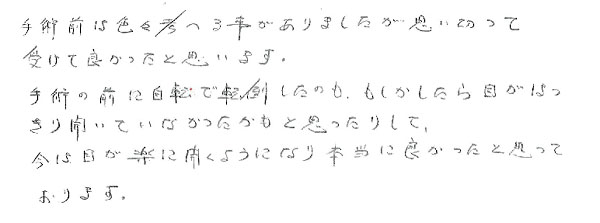 手術前は色々考へる事がありましたが思い切って
受けて良かったと思います。
手術の前に自転で転倒したのも、もしかしたら目がはっ
きり開いていなかったかもと思ったりして、
今は目が楽に開くようになり本当に良かったと思って
おります。